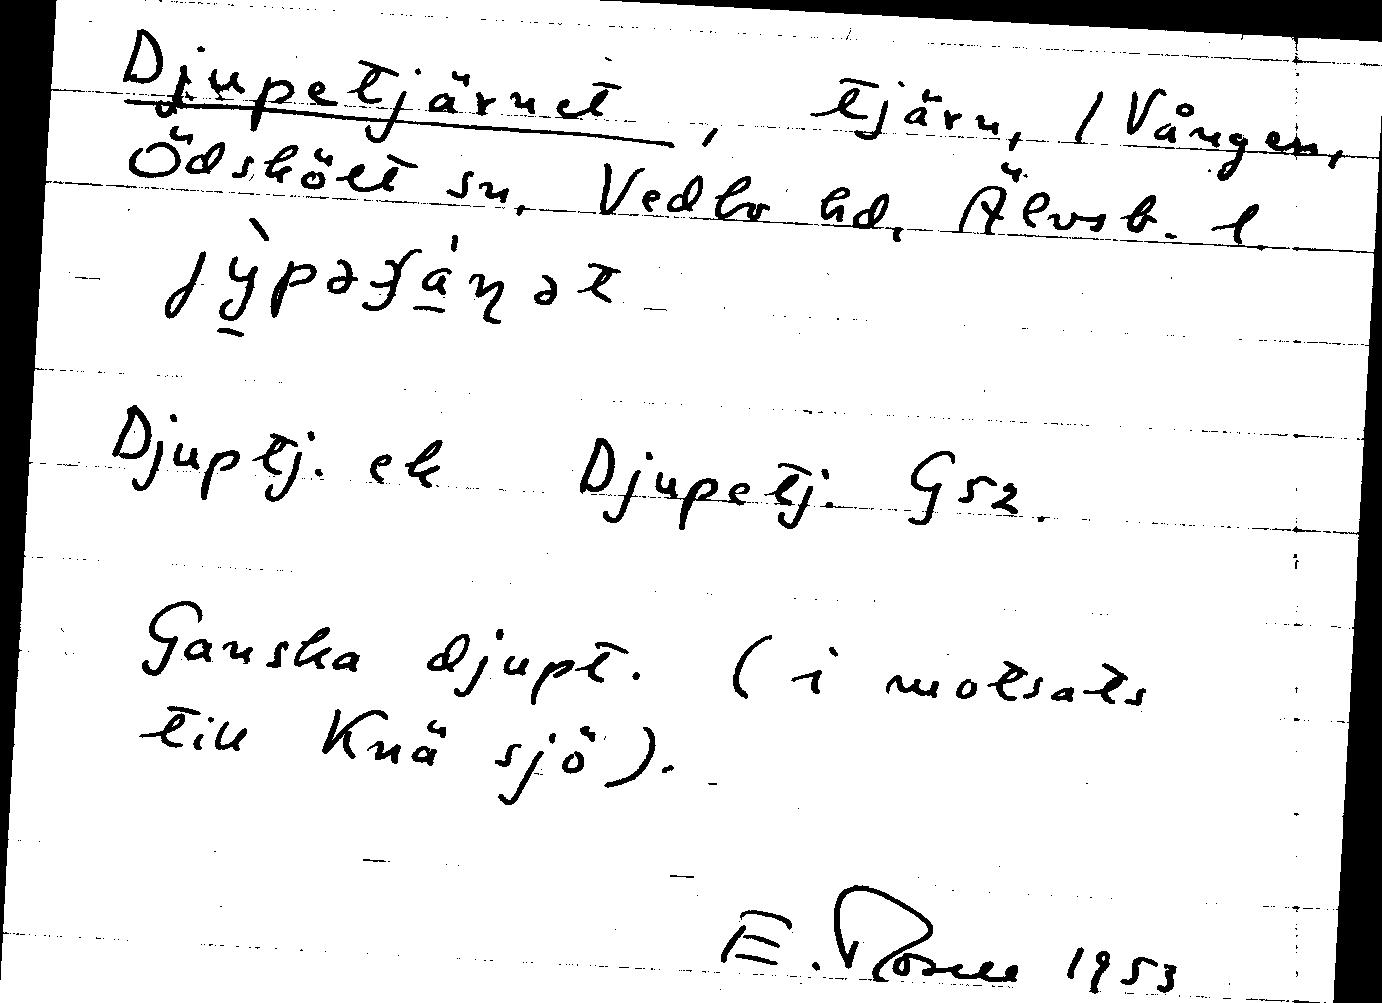 Djupetjärnet, tjärn, / Vången,
Ödskölt sn, Vedbo hd, Älvsb. l.
Djuptj. ek Djupetj. G52.
Ganska djupt. (i motsats
till Knäsjö).
E. Rosell 1953